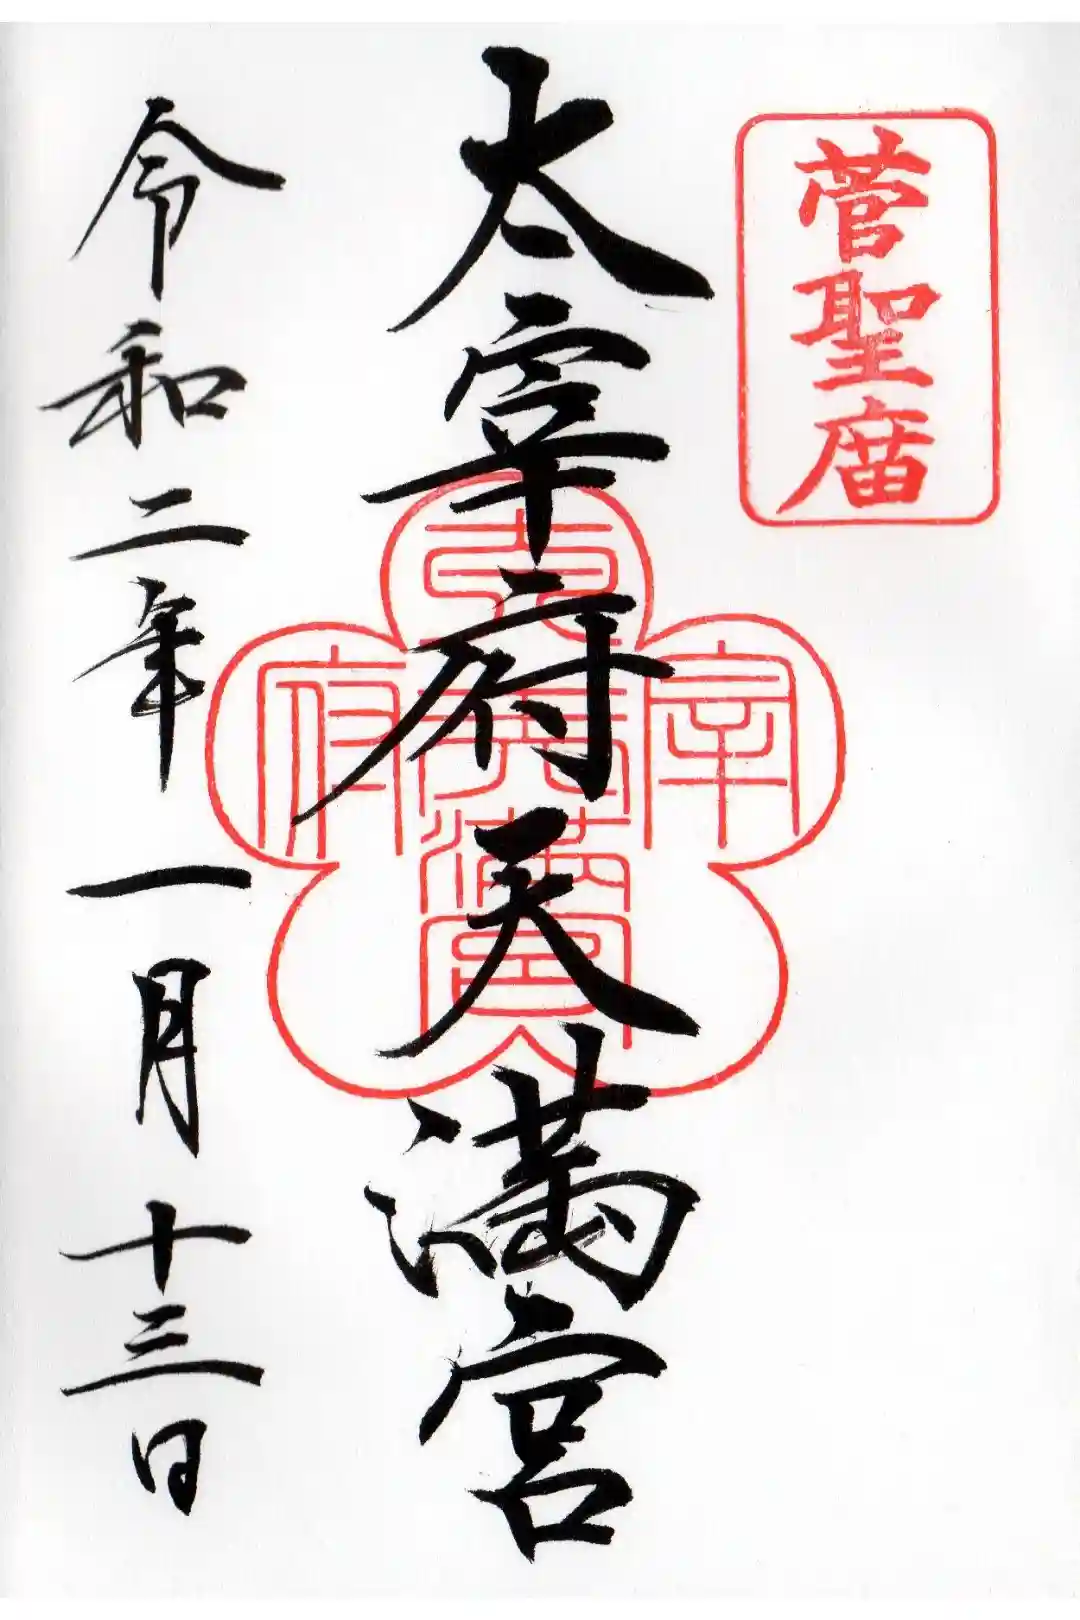 菅聖庿
太宰府天満宮
太宰府天満宮
令和二年一月十三日